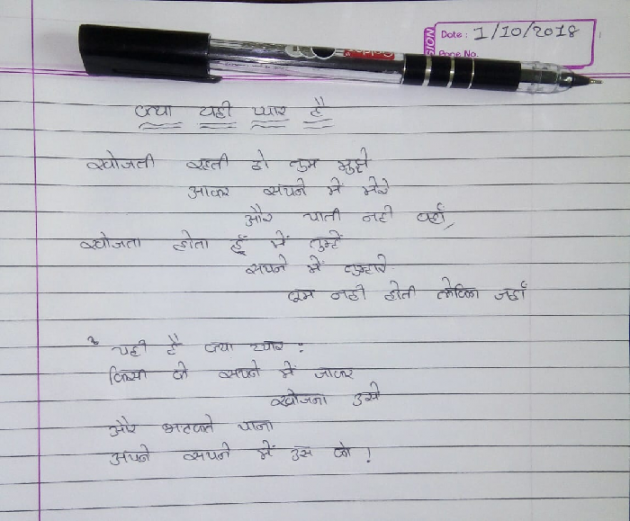 Date: 1/10/2018
Page No.
क्या यही प्यार है
खोजती रहती हो तुम मुझे
आकर सपने में मेरे
और पाती नहीं वहाँ,
खोजता होता हूँ मैं तुम्हें
सपने में तुम्हारे
तुम नहीं होती लेकिन जहाँ
यही है क्या प्यार :
किसी के सपने में जाकर
खोजना उसे
और भटकते पाना
अपने सपने में उस को !